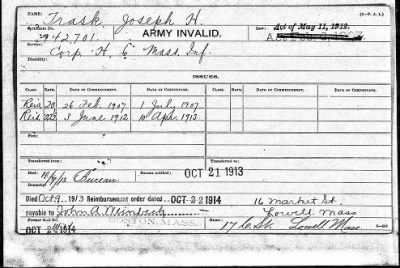 Name: Trask, Joseph H.
Certificate No. 942,701. ARMY INVALID. Law: Act of May 11, 1912.
Service: Corp. H, 6 Mass. Inf.
Disability:
ISSUES.
CLASS. RATE. DATE OF COMMENCEMENT. DATE OF CERTIFICATE. CLASS. RATE. DATE OF COMMENCEMENT. DATE OF CERTIFICATE.
Reis 26 Feb. 1907 1 July 1907
Reis 3 June 1912 Apr. 1913
Transferred from
Transferred to
Bureau OCT 21 1913
Died Oct 9, 1913 Reimbursement order dated OCT 22 1914
payable to John A. 16 Market St.
Lowell Mass
BOSTON, MASS.
OCT 2 1914 17 St. Lowell Mass.